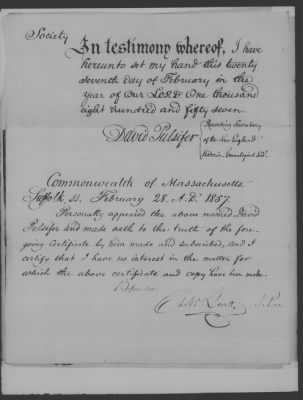 Society
In testimony whereof, I have
hereunto set my hand this twenty
seventh day of February in the
year of Our LORD One thousand
eight hundred and fifty seven.
David Pulsifer
Recording Secretary
of the New England
Historic Genealogical Soc.
Commonwealth of Massachusetts
Suffolk, ss. February 28, A.D. 1857.
Personally appeared the above named David
Pulsifer and made oath to the truth of the fore-
going Certificate by him made and subscribed, and I
certify that I have no interest in the matter for
which the above certificate and copy have been made.
Before me